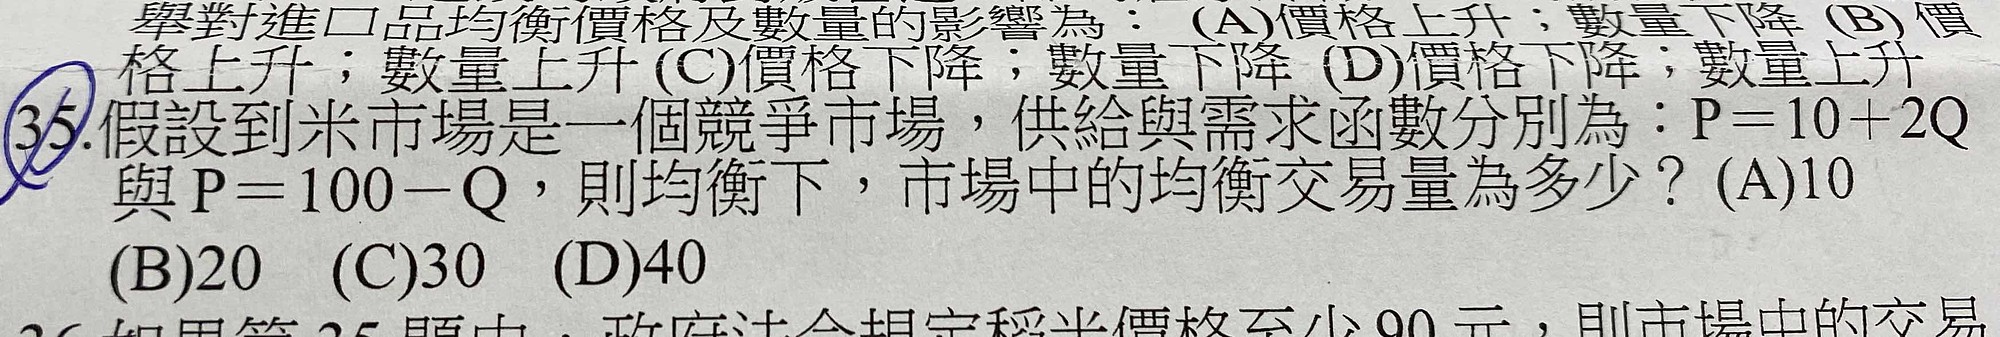 舉對進口品均衡價格及數量的影響為：(A)價格上升；數量下降 (B) 價
格上升；數量上升 (C)價格下降；數量下降 (D)價格下降；數量上升
35.假設到米市場是一個競爭市場，供給與需求函數分別為：P＝10＋2Q
與 P＝100－Q，則均衡下，市場中的均衡交易量為多少？ (A)10
(B)20 (C)30 (D)40
36.如果第 35 題中，政府法令規定稻米價格至少 90 元，則市場中的交易